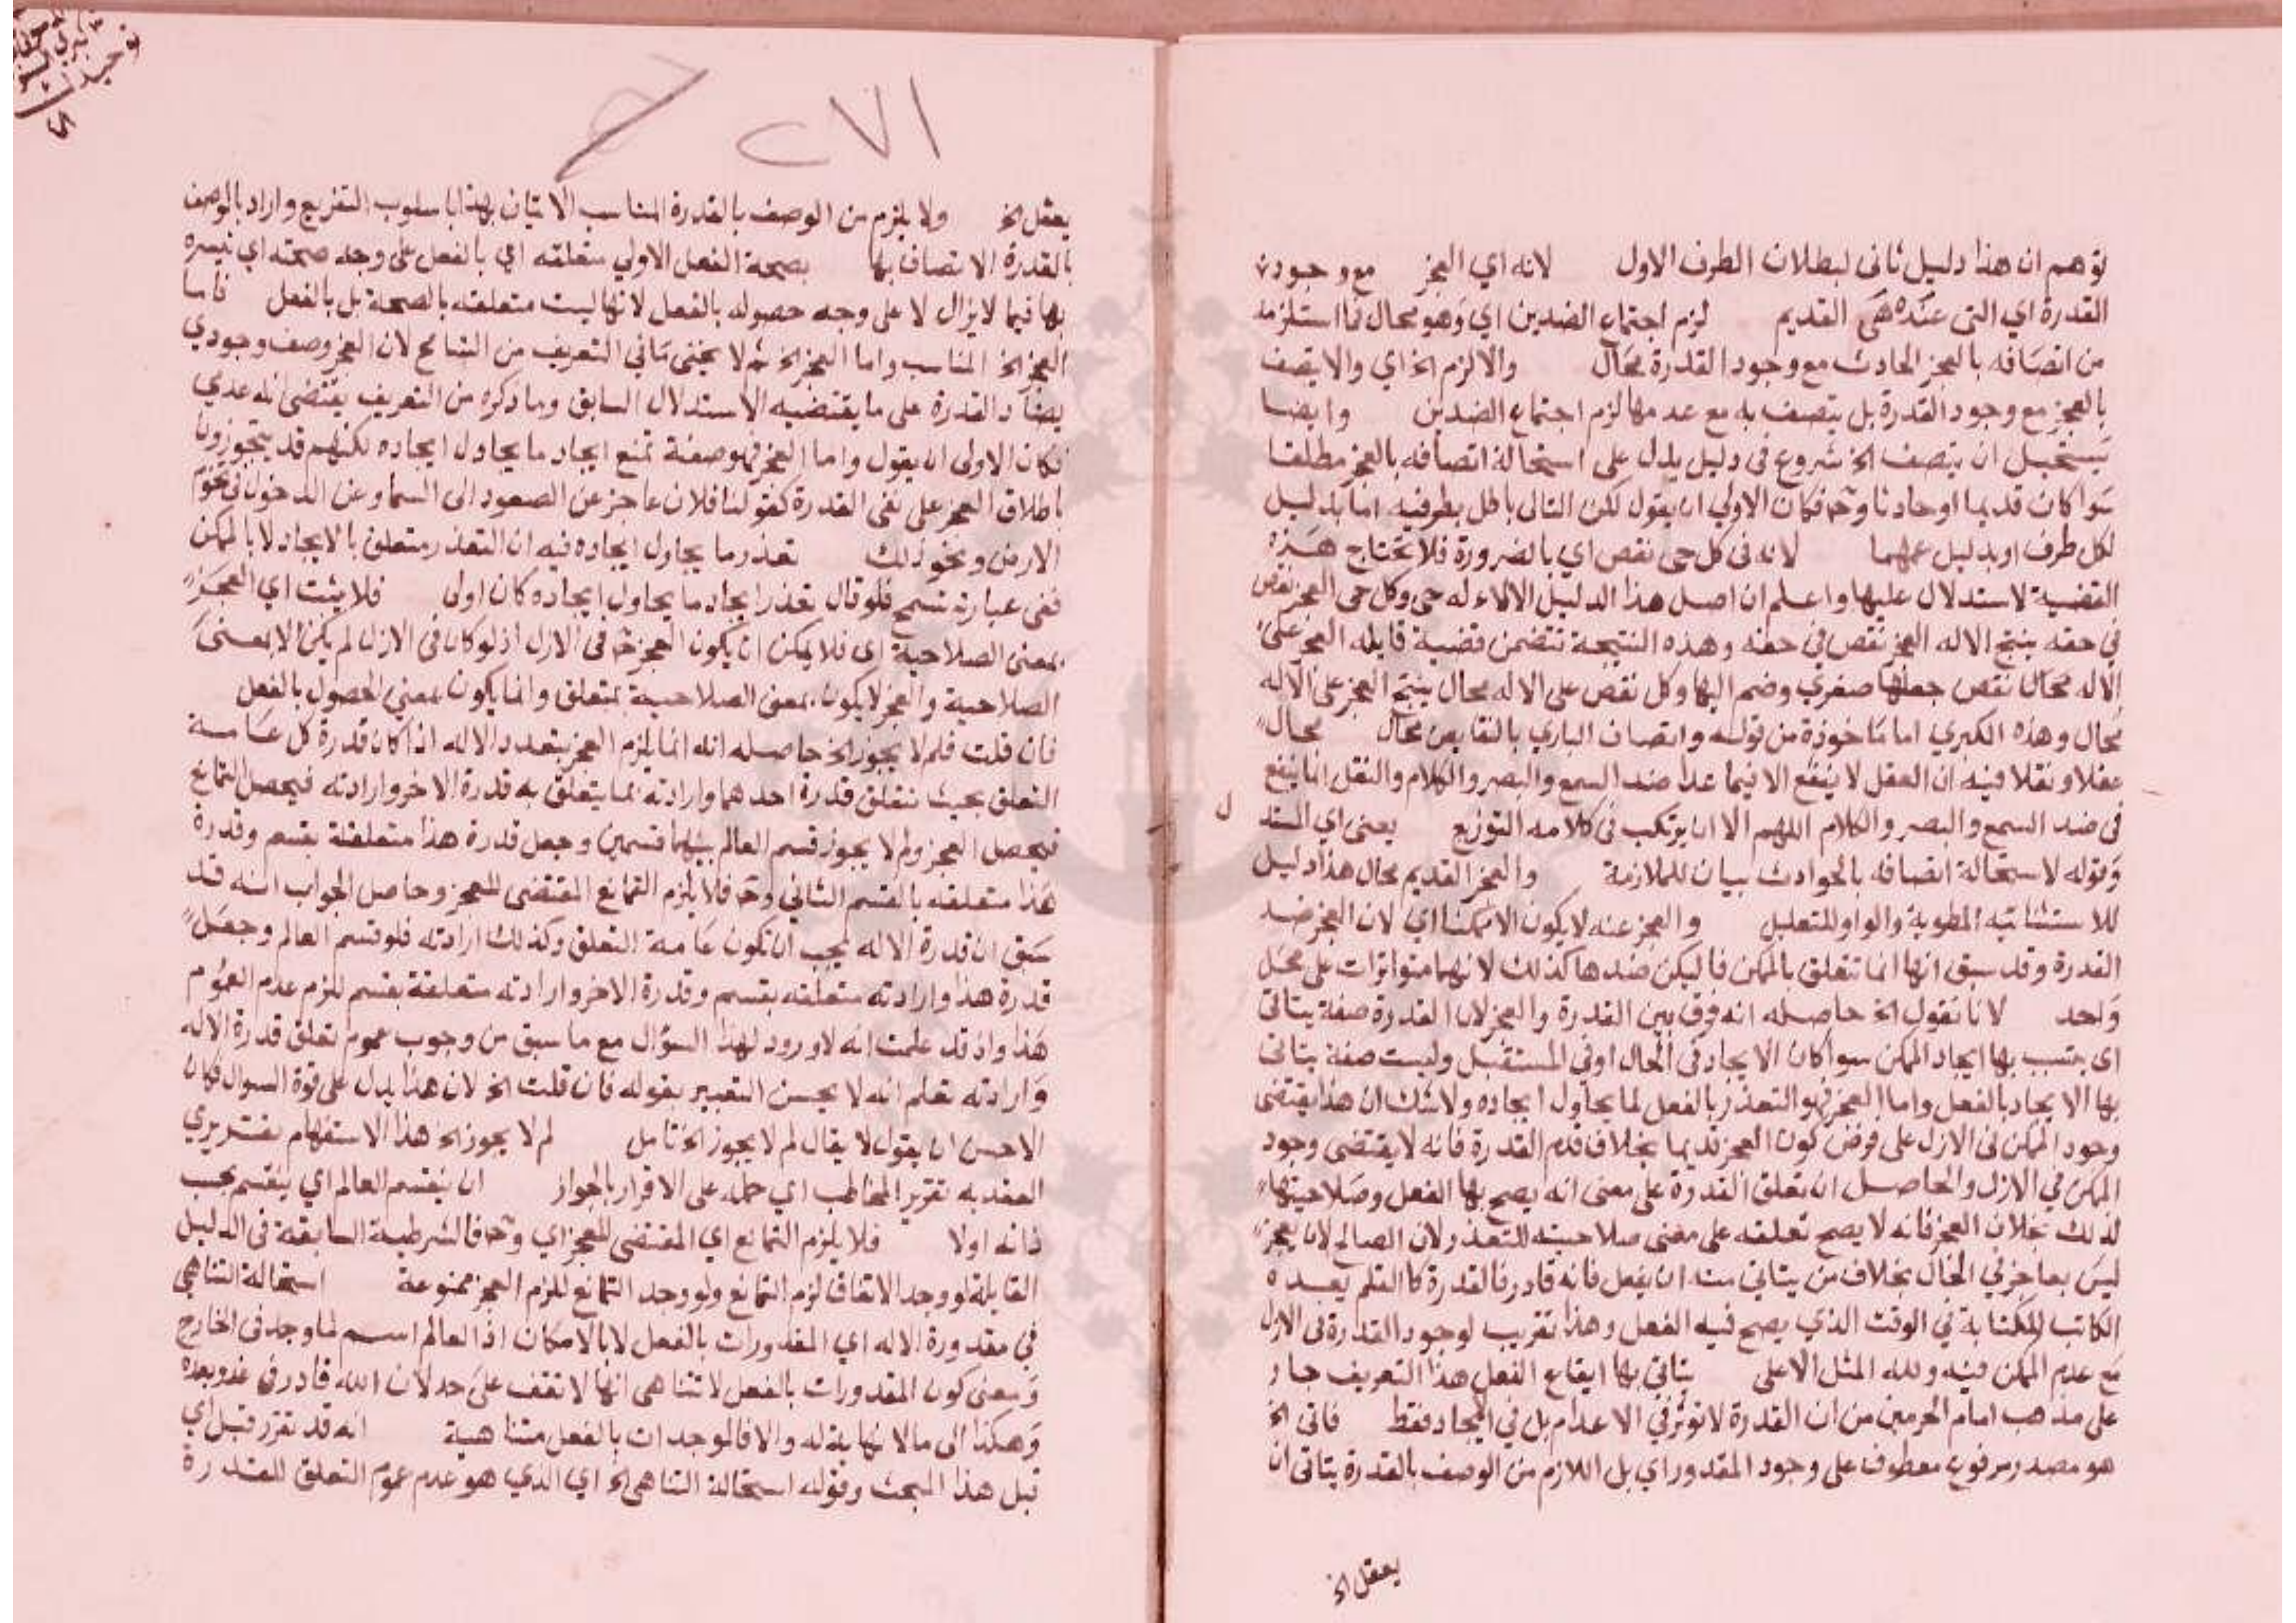 توهم ان هذا دليل ثانى لبطلان الطرف الاول لانه اي العجز مع وجود
القدرة اي التى عنده هى القديم لزم اجتماع الضدين اي وهو محال فما استلزمه
من اتصافه بالعجز الحادث مع وجود القدرة محال والا لزم الخ اي والا يتصف
بالعجز مع وجود القدرة بل يتصف به مع عدمها لزم اجتماع الضدين وايضا
يستحيل ان يتصف الخ شروع فى دليل يدل على استحالة اتصافه بالعجز مطلقا
سوا كان قديما او حادثا وح فكان الاولي ان يقول لكن التالى باطل بطرفيه اما بدليل
لكل طرف او بدليل عمهما لانه فى كل حى نقص اي بالضرورة فلا تحتاج هذه
القضية لاستدلال عليها واعلم ان اصل هذا الدليل الاله حى وكل حى العجز نقص
في حقه ينتج الاله العجز نقص في حقه وهذه النتيجة تتضمن قضية قايله العجز على
الاله محال نقص جعلها صغري وضم اليها وكل نقص على الاله محال ينتج العجز على الاله
محال وهذه الكبري اما ماخوذة من قوله واتصاف الباري بالنقايص محال محال
عقلا ونقلا فيه ان العقل لا ينفع الا فيما عدا ضد السمع والبصر والكلام والنقل انما ينفع
فى ضد السمع والبصر والكلام اللهم الا ان يرتكب فى كلامه التوزيع يعنى اي المستد
ل
وقوله لاستحالة اتصافه بالحوادث بيان للملازمة والعجز القديم محال هذا دليل
للاستثنائية المطوية والواو للتعليل والعجز عنه لا يكون الا ممكنا اي لان العجز ضد
القدرة وقد سبق انها انما تتعلق بالممكن فاليكن ضدها كذلك لانهما متواترات على محل
واحد لانا نقول الخ حاصله انه فرق بين القدرة والعجز لان القدرة صفة يتاتى
اى بسبب بها ايجاد الممكن سوا كان الايجاد فى الحال او فى المستقبل وليست صفة يتاتى
بها الايجاد بالفعل واما العجز فهو التعذر بالفعل لما يحاول ايجاده ولا شك ان هذا يقتضى
وجود الممكن فى الازل على فرض كون العجز قديما بخلاف قدم القدرة فانه لا يقتضى وجود
الممكن في الازل والحاصل ان تعلق القدرة على معنى انه يصح بها الفعل وصلاحيتها
لذلك بخلاف العجز فانه لا يصح تعلقه على معنى صلاحيته للتعذر لان الصالح لان يعجز
ليس بعاجز في الحال بخلاف من يتاتي منه ان يفعل فانه قادر فالقدرة كالقلم يعده
الكاتب للكتابة في الوقت الذي يصح فيه الفعل وهذا تقريب لوجود القدرة فى الازل
مع عدم الممكن فيه ولله المثل الاعلى يتاتي بها ايقاع الفعل هذا التعريف جار
على مذهب امام الحرمين من ان القدرة لا توثر في الاعدام بل في الايجاد فقط فاتى الخ
هو مصدر مرفوع معطوف على وجود المقدور اي بل اللازم من الوصف بالقدرة يتاتى ان
يعقل الخ
٢٧١
يعقل الخ ولا يلزم من الوصف بالقدرة المناسب الاتيان بهذا باسلوب التفريع واراد بالوصف
بالقدرة الاتصاف بها بصحة الفعل الاولي متعلقه اي بالفعل على وجه صحته اي تيسره
بها فيما لا يزال لا على وجه حصوله بالفعل لانها ليست متعلقه بالصحة بل بالفعل فاما
العجز الخ المناسب واما العجز الخ ثم لا يخفى مافي التعريف من التسامح لان العجز وصف وجودي
يضاد القدرة على ما يقتضيه الاستدلال السابق وما ذكره من التعريف يقتضى انه عدمي
فكان الاولى ان يقول واما العجز فهو صفة تمنع ايجاد ما يحاول ايجاده لكنهم قد يتجوزون
باطلاق العجز على نفى القدرة كقولنا فلان عاجز عن الصعود الى السما وعن الدخول فى تخوم
الارض ونحو ذلك تعذر ما يحاول ايجاده فيه ان التعذر متعلق بالايجاد لا بالممكن
ففى عبارته تسمح فلو قال تعذر ايجاد ما يحاول ايجاده كان اولى فلا يثبت اي العجز
بمعنى الصلاحية اى فلا يمكن ان يكون العجز ح في الازل اذ لو كان فى الازل لم يكن الا بمعنى
الصلاحية والعجز لا يكون بمعنى الصلاحية بمتعلق وانما يكون بمعنى الحصول بالفعل
فان قلت فلم لا يجوز الخ حاصله انه انما يلزم العجز بتعدد الاله اذا كان قدرة كل عامة
التعلق بحيث تتعلق قدرة احدهما وارادته بما يتعلق به قدرة الاخر وارادته فيحصل التمانع
فيحصل العجز ولم لا يجوز قسم العالم بينهما قسمين وجعل قدرة هذا متعلقة بقسم وقدرة
هذا متعلقه بالقسم الثاني وح فلا يلزم التمانع المقتضى للعجز وحاصل الجواب انه قد
سبق ان قدرة الاله يجب ان تكون عامة التعلق وكذلك ارادته فلو قسم العالم وجعل
قدرة هذا وارادته متعلقه بقسم وقدرة الاخر وارادته متعلقة بقسم للزم عدم العموم
هذا واذ قد علمت انه لا ورود لهذا السؤال مع ما سبق من وجوب عموم تعلق قدرة الاله
وارادته تعلم انه لا يحسن التعبير بقوله فان قلت الخ لان هذا يدل على قوة السوال فكان
الاحسن ان يقول لا يقال لم لا يجوز الخ تامل لم لا يجوز الخ هذا الاستفهام تقريري
القصد به تقرير المخاطب اي حمله على الاقرار بالجواز ان ينقسم العالم اي ينقسم بحسب
ذاته اولا فلا يلزم التمانع اي المقتضى للعجز اي وح فالشرطية السابقة فى الدليل
القايلة لو وجد الاتفاق لزم التمانع ولو وجد التمانع للزم العجز ممنوعة استحالة التناهي
في مقدورة الاله اي المقدورات بالفعل لا بالامكان اذ العالم اسم لما وجد فى الخارج
ومعنى كون المقدورات بالفعل لا تتناهى انها لا تقف على حد لان الله قادر في غد وبعده
وهكذا الى ما لا نهاية له والا فالموجدات بالفعل متناهية انه قد تقرر قبل اي
قبل هذا المبحث وقوله استحالة التناهى الخ اي الذي هو عدم عموم التعلق للقدرة